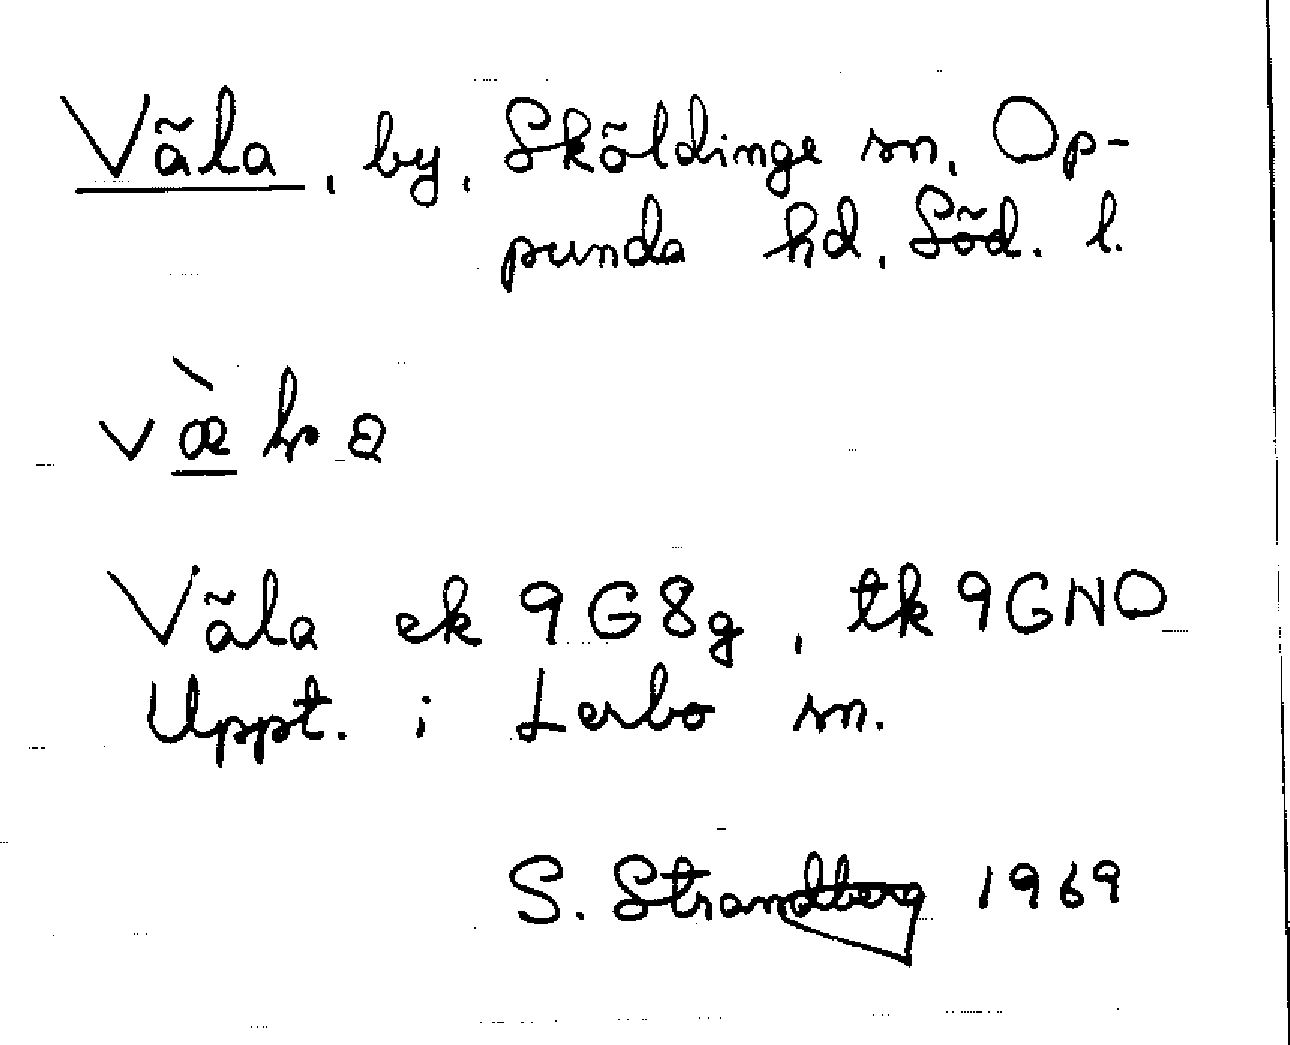 Väla, by, Sköldinge sn, Op-
punda hd, Söd. l.
Väla ek 9G8g, tk 9GNO
Uppt. i Lerbo sn.
S. Strandberg 1969